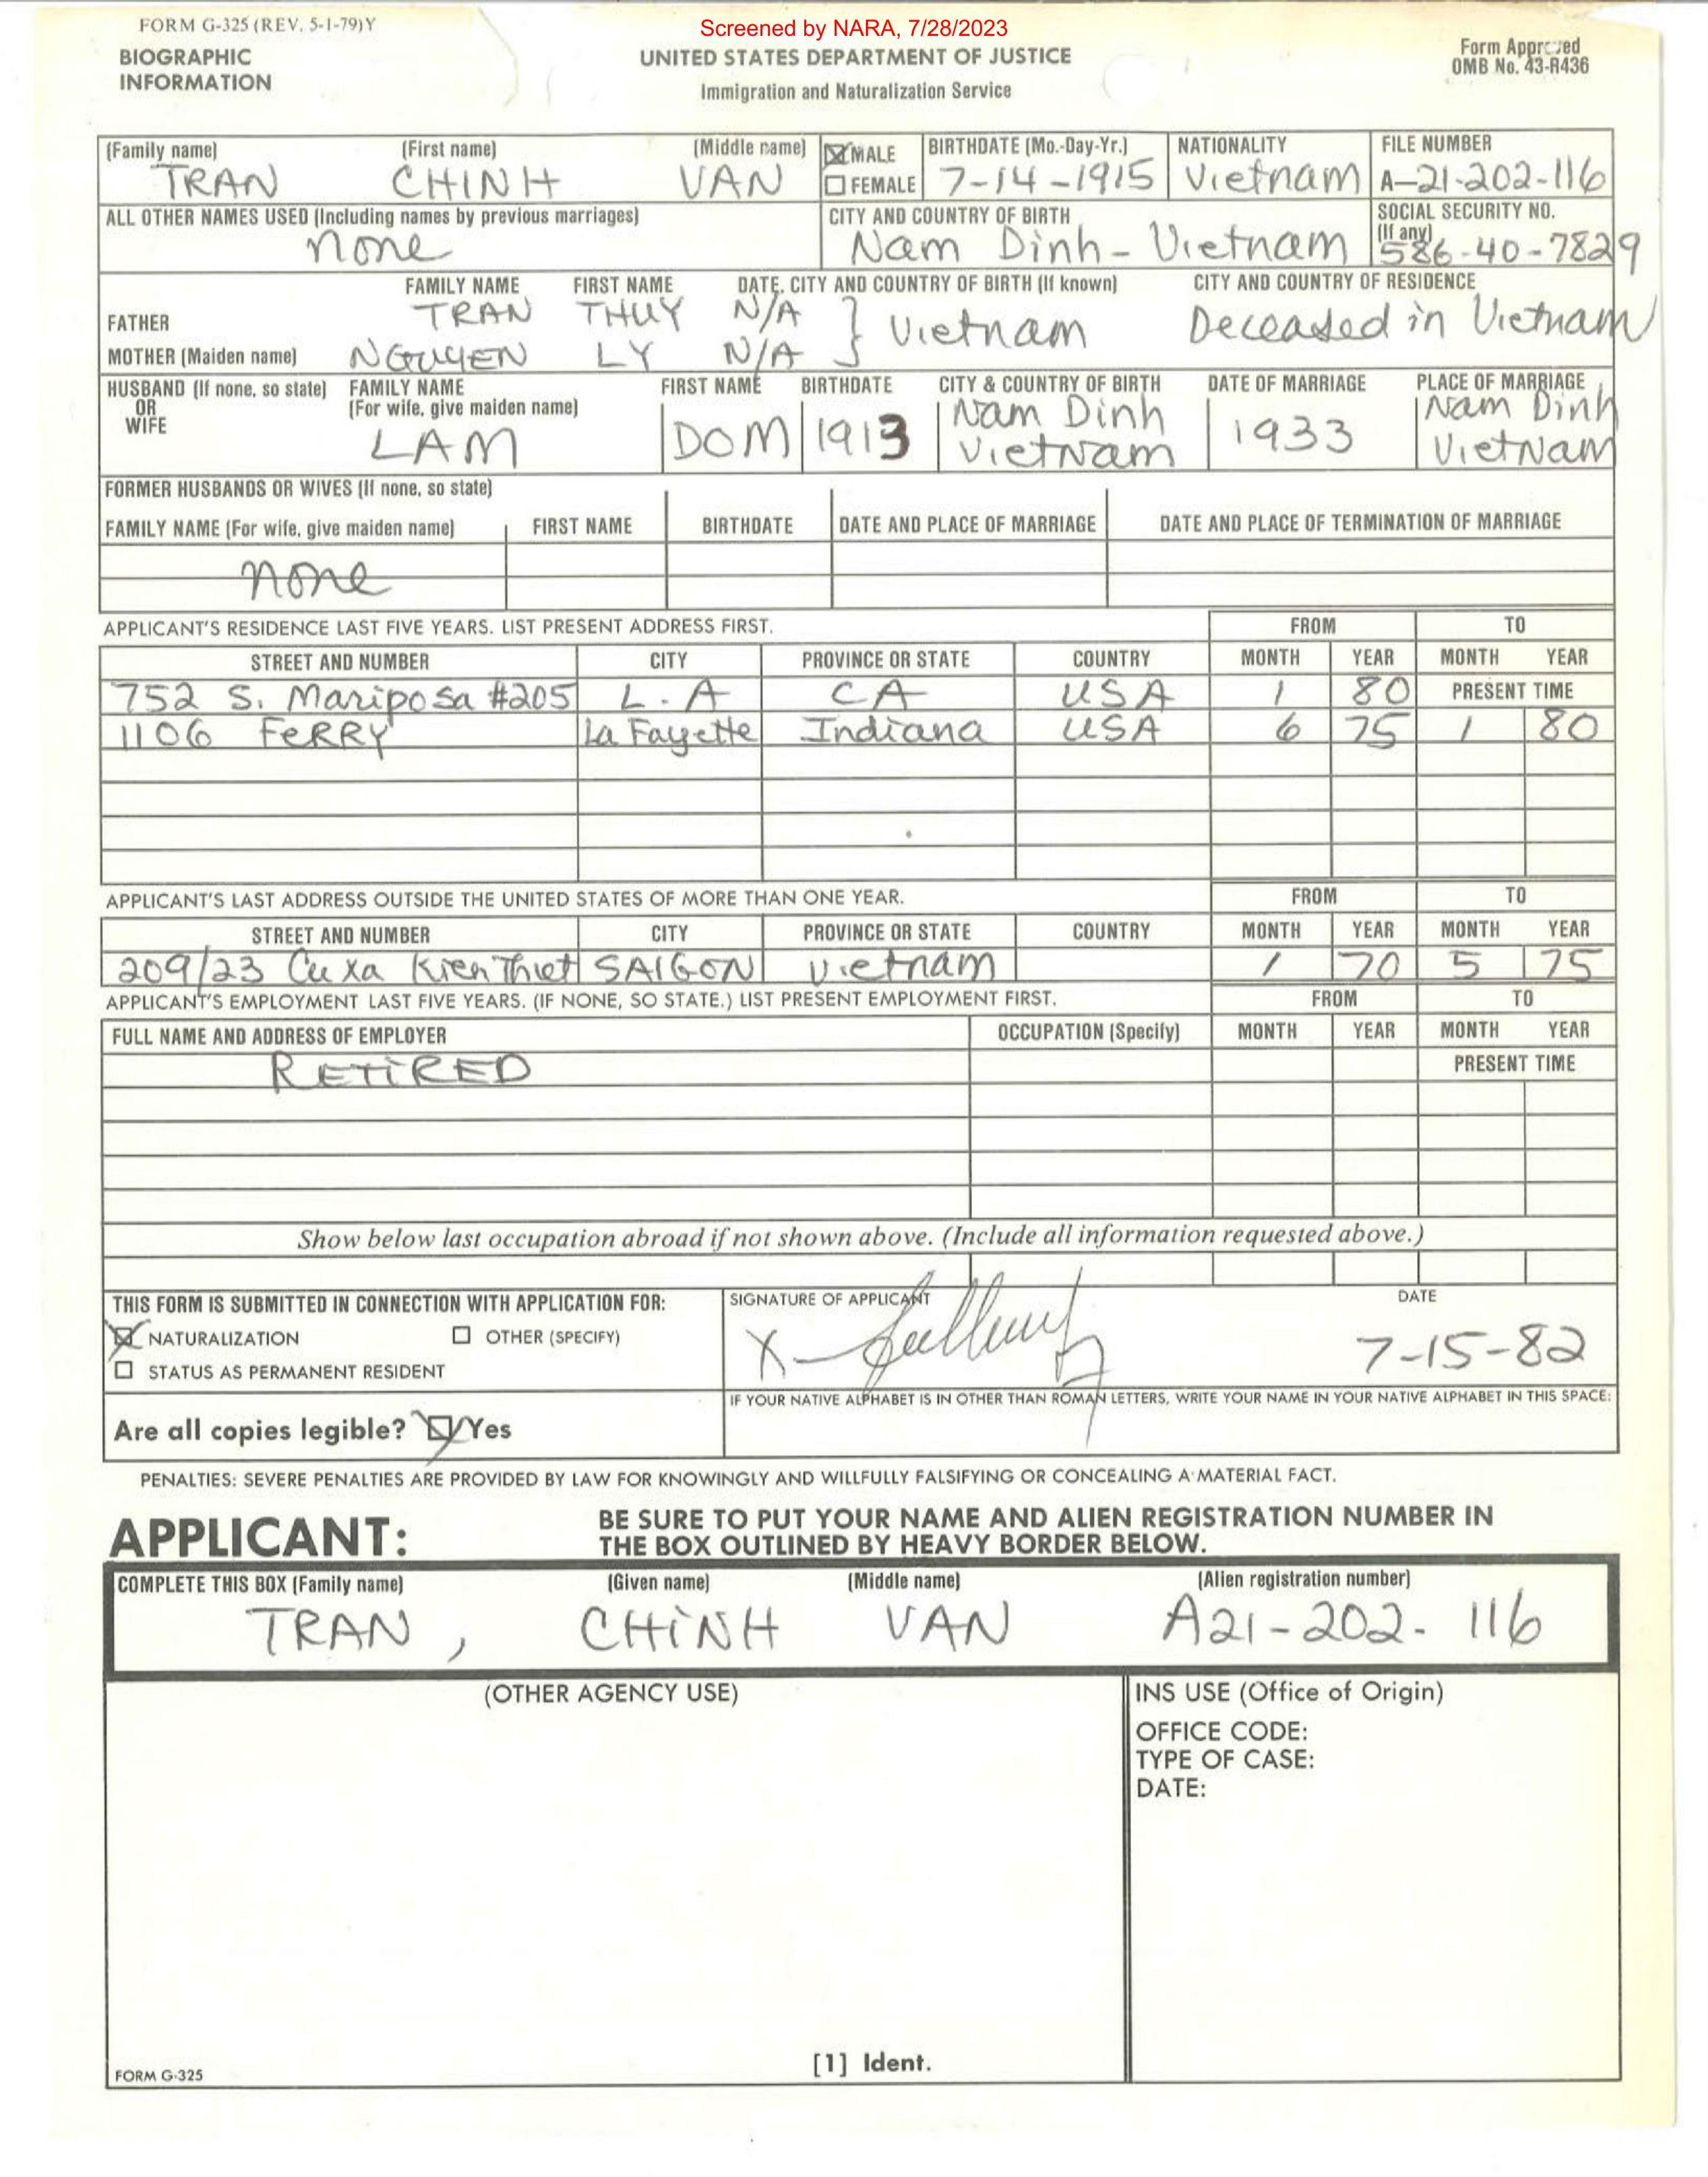 FORM G-325 (REV. 5-1-79)Y
Screened by NARA, 7/28/2023
BIOGRAPHIC
INFORMATION
UNITED STATES DEPARTMENT OF JUSTICE
Immigration and Naturalization Service
Form Approved
OMB No. 43-R436
(Family name) (First name) (Middle name) MALE BIRTHDATE (Mo.-Day-Yr.) NATIONALITY FILE NUMBER
TRAN CHINH VAN FEMALE 7-14-1915 Vietnam A-21-202-116
ALL OTHER NAMES USED (Including names by previous marriages) CITY AND COUNTRY OF BIRTH SOCIAL SECURITY NO.
(If any)
none Nam Dinh - Vietnam 586-40-7829
FAMILY NAME FIRST NAME DATE, CITY AND COUNTRY OF BIRTH (If known) CITY AND COUNTRY OF RESIDENCE
FATHER TRAN THUY N/A } Vietnam Deceased in Vietnam
MOTHER (Maiden name) NGUYEN LY N/A
HUSBAND (If none, so state) FAMILY NAME FIRST NAME BIRTHDATE CITY & COUNTRY OF BIRTH DATE OF MARRIAGE PLACE OF MARRIAGE
OR (For wife, give maiden name) Nam Dinh Nam Dinh
WIFE LAM DOM 1913 VietNam 1933 VietNam
FORMER HUSBANDS OR WIVES (If none, so state)
FAMILY NAME (For wife, give maiden name) FIRST NAME BIRTHDATE DATE AND PLACE OF MARRIAGE DATE AND PLACE OF TERMINATION OF MARRIAGE
none
APPLICANT'S RESIDENCE LAST FIVE YEARS. LIST PRESENT ADDRESS FIRST. FROM TO
STREET AND NUMBER CITY PROVINCE OR STATE COUNTRY MONTH YEAR MONTH YEAR
752 S. Mariposa #205 L.A CA USA 1 80 PRESENT TIME
1106 FERRY La Fayette Indiana USA 6 75 1 80
APPLICANT'S LAST ADDRESS OUTSIDE THE UNITED STATES OF MORE THAN ONE YEAR. FROM TO
STREET AND NUMBER CITY PROVINCE OR STATE COUNTRY MONTH YEAR MONTH YEAR
209/23 Cu xa Kien Thiet SAIGON Vietnam 1 70 5 75
APPLICANT'S EMPLOYMENT LAST FIVE YEARS. (IF NONE, SO STATE.) LIST PRESENT EMPLOYMENT FIRST. FROM TO
FULL NAME AND ADDRESS OF EMPLOYER OCCUPATION (Specify) MONTH YEAR MONTH YEAR
RETIRED PRESENT TIME
Show below last occupation abroad if not shown above. (Include all information requested above.)
THIS FORM IS SUBMITTED IN CONNECTION WITH APPLICATION FOR: SIGNATURE OF APPLICANT DATE
NATURALIZATION OTHER (SPECIFY) X 7-15-82
STATUS AS PERMANENT RESIDENT
IF YOUR NATIVE ALPHABET IS IN OTHER THAN ROMAN LETTERS, WRITE YOUR NAME IN YOUR NATIVE ALPHABET IN THIS SPACE:
Are all copies legible? Yes
PENALTIES: SEVERE PENALTIES ARE PROVIDED BY LAW FOR KNOWINGLY AND WILLFULLY FALSIFYING OR CONCEALING A MATERIAL FACT.
APPLICANT: BE SURE TO PUT YOUR NAME AND ALIEN REGISTRATION NUMBER IN
THE BOX OUTLINED BY HEAVY BORDER BELOW.
COMPLETE THIS BOX (Family name) (Given name) (Middle name) (Alien registration number)
TRAN, CHINH VAN A21-202-116
(OTHER AGENCY USE) INS USE (Office of Origin)
OFFICE CODE:
TYPE OF CASE:
DATE:
FORM G-325 [1] Ident.